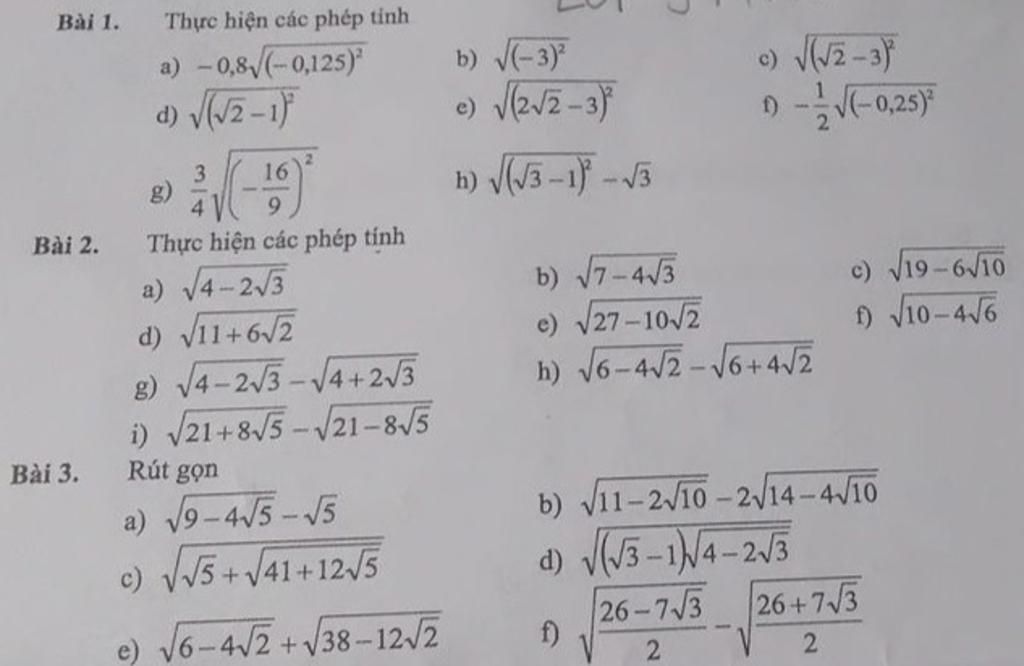 Bài 1. Thực hiện các phép tính
a) −0,8√(−0,125)² b) √(−3)² c) √(√2 − 3)²
d) √(√2 − 1)² e) √(2√2 − 3)² f) −1/2 √(−0,25)²
g) 3/4 √(−16/9)² h) √(√3 − 1)² − √3
Bài 2. Thực hiện các phép tính
a) √(4 − 2√3) b) √(7 − 4√3) c) √(19 − 6√10)
d) √(11 + 6√2) e) √(27 − 10√2) f) √(10 − 4√6)
g) √(4 − 2√3) − √(4 + 2√3) h) √(6 − 4√2) − √(6 + 4√2)
i) √(21 + 8√5) − √(21 − 8√5)
Bài 3. Rút gọn
a) √(9 − 4√5) − √5 b) √(11 − 2√10) − 2√(14 − 4√10)
c) √(√5 + √(41 + 12√5)) d) √((√3 − 1)√(4 − 2√3))
e) √(6 − 4√2) + √(38 − 12√2) f) √((26 − 7√3)/2) − √((26 + 7√3)/2)